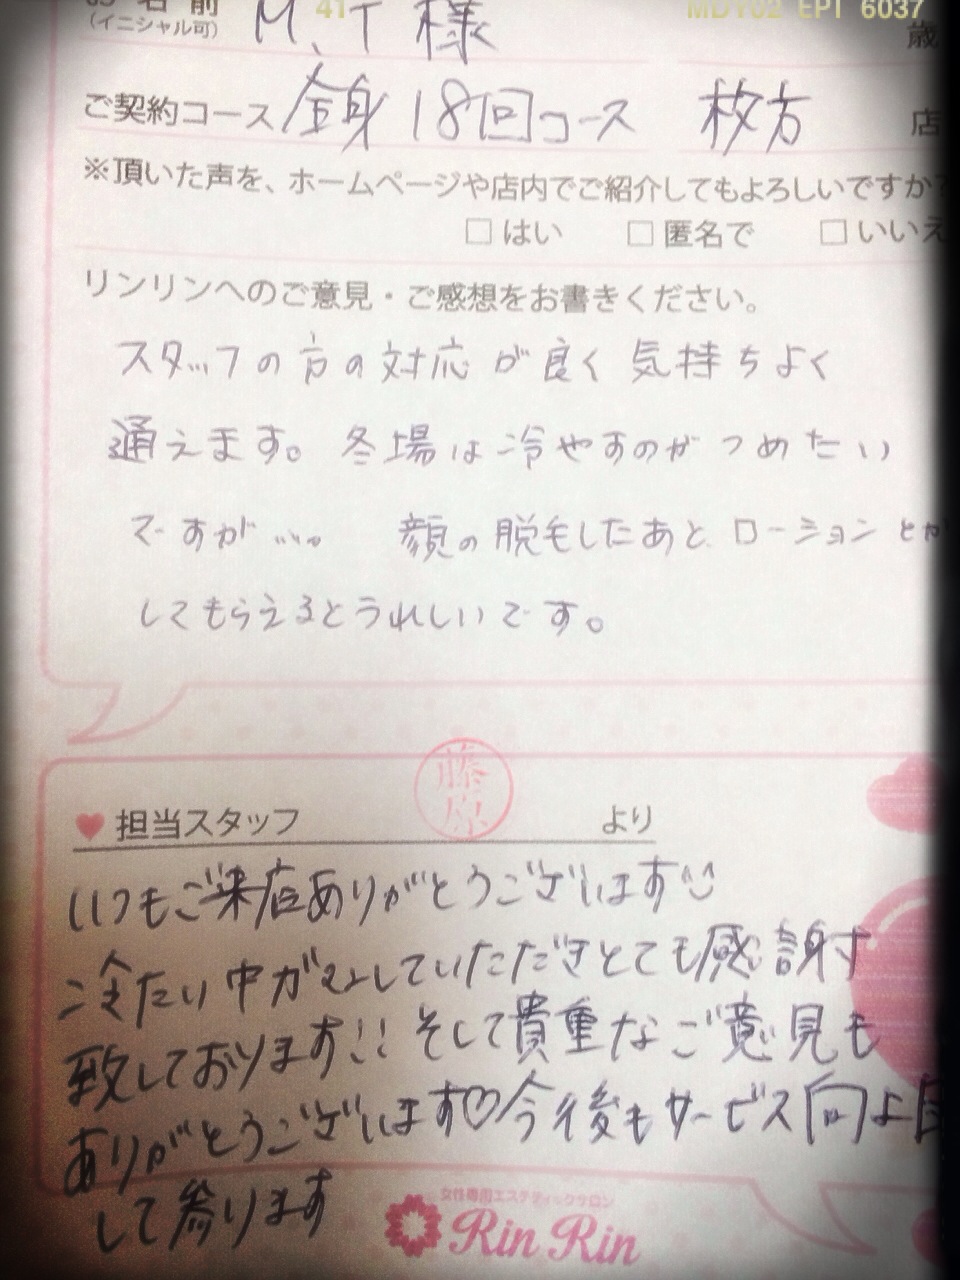 お名前
(イニシャル可)
M.T 様
歳
41
MDY02 EPI 6037
ご契約コース 全身18回コース 枚方 店
※頂いた声を、ホームページや店内でご紹介してもよろしいですか?
□はい □匿名で □いいえ
リンリンへのご意見・ご感想をお書きください。
スタッフの方の対応が良く気持ちよく
通えます。冬場は冷やすのがつめたい
ですが… 顔の脱毛したあと、ローションとか
してもらえるとうれしいです。
藤原
♥担当スタッフ より
いつもご来店ありがとうございます
冷たい中ガマンしていただきとても感謝
致しております!! そして貴重なご意見も
ありがとうございます♡今後もサービス向上目
して参ります
女性専用エステティックサロン
Rin Rin